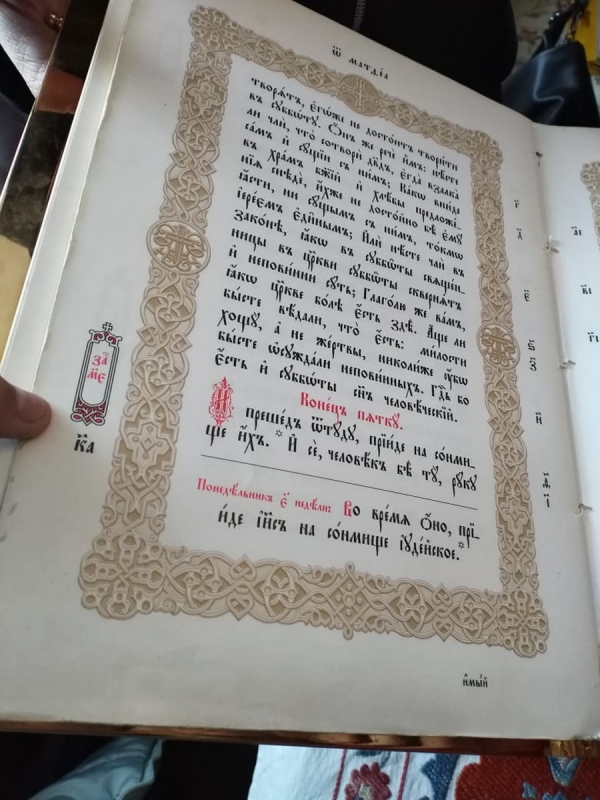 Ѿ МАТѲЕ́А
творѧ́тъ, є҆гѡ́же не досто́итъ твори́ти
въ сꙋббѡ́тꙋ. Ѻ҆́нъ же речѐ и҆̀мъ: нѣ́сте
ли члѝ, что̀ сотворѝ дв҃дъ, є҆гда̀ взалка̀
са́мъ и҆ сꙋ́щїи съ ни́мъ; Ка́кѡ вни́де
въ хра́мъ бж҃їй и҆ хлѣ́бы предложе́-
нїѧ снѣдѐ, и҆́хже не досто́йно бѣ̀ є҆мꙋ̀
ꙗ҆́сти, ни сꙋ́щымъ съ ни́мъ, то́кмѡ
і҆ере́ємъ є҆ди̑нымъ; И҆лѝ нѣ́сте члѝ въ
зако́нѣ, ꙗ҆́кѡ въ сꙋббѡ̑ты свѧще́н-
ницы въ цр҃кви сꙋббѡ̑ты сквернѧ́тъ
и҆ непови́нни сꙋ́ть; Глаго́лю же ва́мъ,
ꙗ҆́кѡ цр҃кве бо́лѣ є҆́сть здѣ̀. А҆́ще ли
бы́сте вѣ́дали, что̀ є҆́сть: ми́лости
хощꙋ̀, а҆ не же́ртвы, николи́же ᲂу҆́бѡ
бы́сте ѡ҆сꙋжда́ли непови́нныхъ. Гдⷭ҇ь бо
є҆́сть и҆ сꙋббѡ́ты сн҃ъ человѣ́ческїй.
Коне́цъ пѧткꙋ̀.
И҆ преше́дъ ѿтꙋ́дꙋ, прїи́де на со́нми-
ще и҆́хъ. * И҆ сѐ, человѣ́къ бѣ̀ тꙋ̀, рꙋ́кꙋ
Понедѣ́льника є҃ недѣ́ли: Во вре́мѧ ѻ҆́но, прї-
и́де і҆и҃съ на со́нмище і҆ꙋде́йское. *
и҆мы́й
за҄
м҃е
к҃а
г҃
д҃
є҃
ѕ҃
з҃
и҃
ѳ҃
і҃
а҃і
в҃і
г҃і